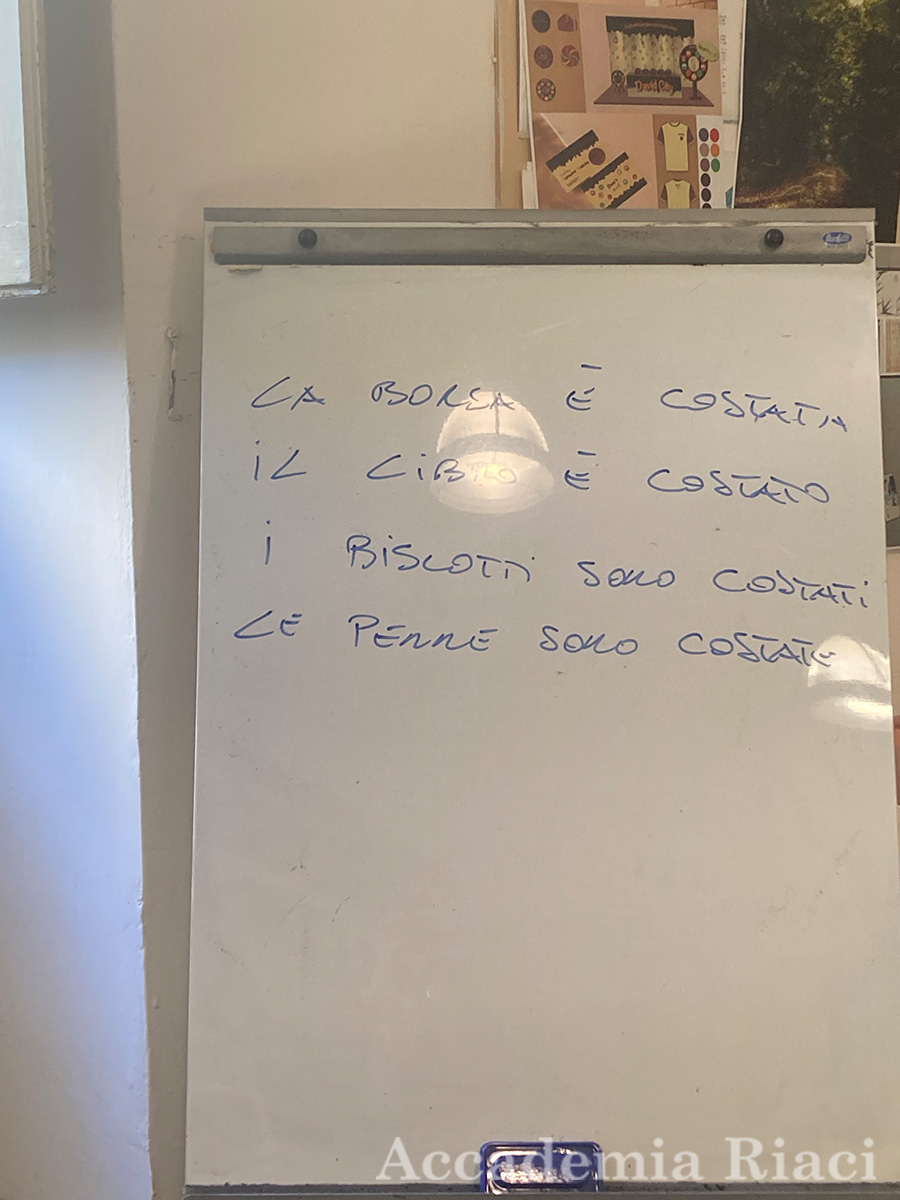 David City
LA BORSA È COSTATA
IL LIBRO È COSTATO
I BISCOTTI SONO COSTATI
LE PENNE SONO COSTATE
Accademia Riaci